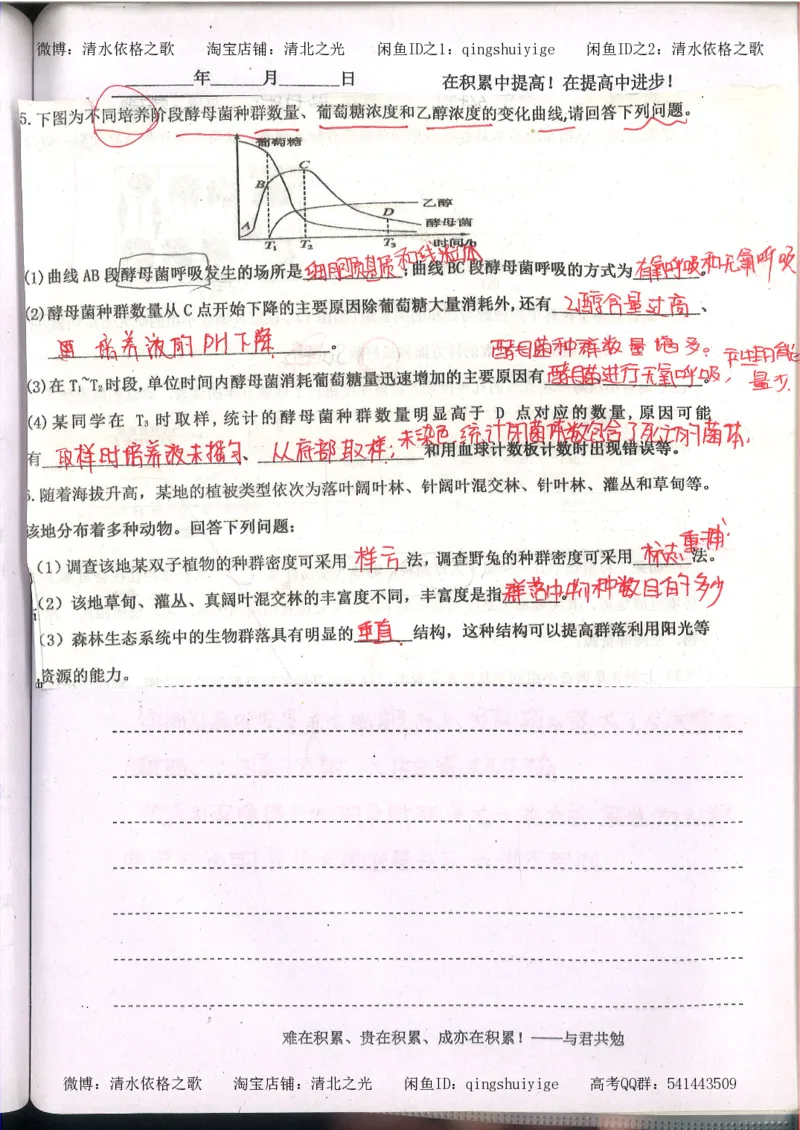 微博：清水依格之歌 淘宝店铺：清北之光 闲鱼ID之1：qingshuiyige 闲鱼ID之2：清水依格之歌
______年______月______日 在积累中提高！在提高中进步！
5.下图为不同培养阶段酵母菌种群数量、葡萄糖浓度和乙醇浓度的变化曲线,请回答下列问题。
葡萄糖
C
B
乙醇
D
A
酵母菌
T₁ T₂ T₃ 时间/h
(1)曲线AB段酵母菌呼吸发生的场所是 细胞质基质和线粒体 ;曲线BC段酵母菌呼吸的方式为 有氧呼吸和无氧呼吸 。
(2)酵母菌种群数量从C点开始下降的主要原因除葡萄糖大量消耗外,还有 乙醇含量过高 、
培养液的PH下降 。
酵母菌种群数量增多。产生的能量少.
(3)在T₁~T₂时段,单位时间内酵母菌消耗葡萄糖量迅速增加的主要原因有 酵母菌进行无氧呼吸, 。
(4)某同学在 T₃ 时取样,统计的酵母菌种群数量明显高于 D 点对应的数量,原因可能
有 取样时培养液未摇匀、从底部取样;未染色统计的菌体数包含了死亡的菌体, 和用血球计数板计数时出现错误等。
6.随着海拔升高，某地的植被类型依次为落叶阔叶林、针阔叶混交林、针叶林、灌丛和草甸等。
该地分布着多种动物。回答下列问题：
(1)调查该地某双子植物的种群密度可采用 样方 法，调查野兔的种群密度可采用 标志重捕 法。
(2) 该地草甸、灌丛、真阔叶混交林的丰富度不同，丰富度是指 群落中物种数目的多少 。
(3) 森林生态系统中的生物群落具有明显的 垂直 结构，这种结构可以提高群落利用阳光等
资源的能力。
难在积累、贵在积累、成亦在积累！——与君共勉
微博：清水依格之歌 淘宝店铺：清北之光 闲鱼ID：qingshuiyige 高考QQ群：541443509